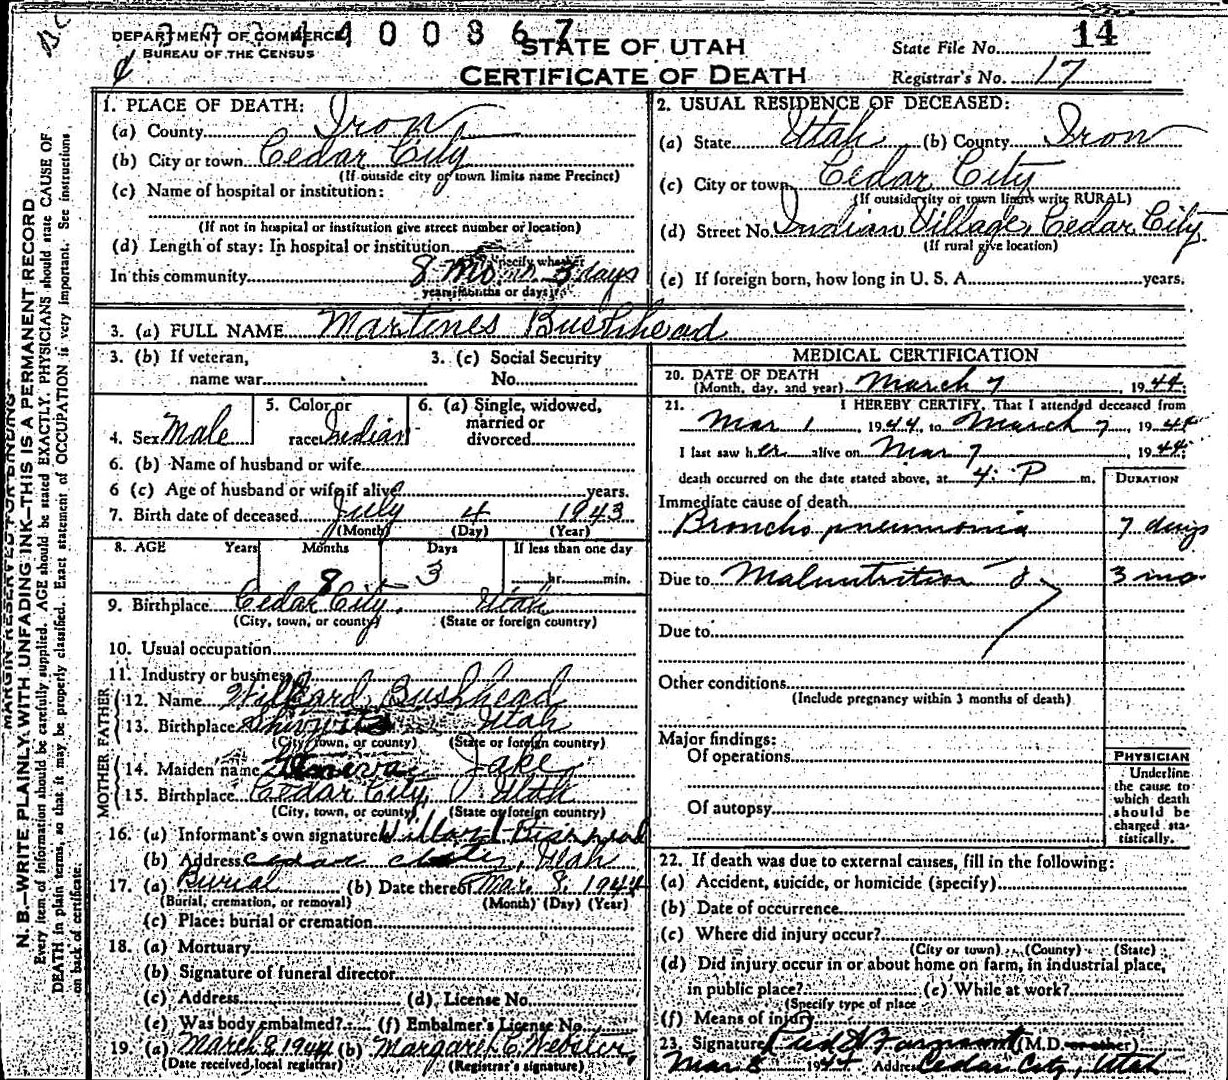 DEPARTMENT OF COMMERCE
BUREAU OF THE CENSUS
STATE OF UTAH
CERTIFICATE OF DEATH
State File No. 14
Registrar's No. 17
MARGIN RESERVED FOR BINDING
N. B.—WRITE PLAINLY, WITH UNFADING INK—THIS IS A PERMANENT RECORD
Every item of information should be carefully supplied. AGE should be stated EXACTLY. PHYSICIANS should state CAUSE OF
DEATH in plain terms, so that it may be properly classified. Exact statement of OCCUPATION is very important. See instructions
on back of certificate.
1. PLACE OF DEATH:
(a) County Iron
(b) City or town Cedar City
(If outside city or town limits name Precinct)
(c) Name of hospital or institution:
(If not in hospital or institution give street number or location)
(d) Length of stay: In hospital or institution
(Specify whether
In this community 8 Mo. 3 days
years, months or days)
2. USUAL RESIDENCE OF DECEASED:
(a) State Utah (b) County Iron
(c) City or town Cedar City
(If outside city or town limits write RURAL)
(d) Street No. Indian Village, Cedar City
(If rural give location)
(e) If foreign born, how long in U. S. A. years.
3. (a) FULL NAME Martines Bushhead
3. (b) If veteran,
name war
3. (c) Social Security
No.
4. Sex Male
5. Color or
race Indian
6. (a) Single, widowed,
married or
divorced
6. (b) Name of husband or wife
6 (c) Age of husband or wife if alive years.
7. Birth date of deceased July 4 1943
(Month) (Day) (Year)
8. AGE Years Months Days If less than one day
8 3 hr. min.
9. Birthplace Cedar City, Utah
(City, town, or county) (State or foreign country)
10. Usual occupation
11. Industry or business
FATHER
12. Name Willard Bushhead
13. Birthplace Shivwits Utah
(City, town, or county) (State or foreign country)
MOTHER
14. Maiden name Jake
15. Birthplace Cedar City, Utah
(City, town, or county) (State or foreign country)
16. (a) Informant's own signature Willard Bushhead
(b) Address cedar city, Utah
17. (a) Burial (b) Date thereof Mar. 8, 1944
(Burial, cremation, or removal) (Month) (Day) (Year)
(c) Place: burial or cremation
18. (a) Mortuary
(b) Signature of funeral director
(c) Address (d) License No.
(e) Was body embalmed? (f) Embalmer's License No.
19. (a) March 8, 1944 (b) Margaret C. Webster
(Date received, local registrar) (Registrar's signature)
MEDICAL CERTIFICATION
20. DATE OF DEATH
(Month, day, and year) March 7 1944
21. I HEREBY CERTIFY, That I attended deceased from
Mar 1, 1944, to March 7, 1944
I last saw h er alive on Mar 7 1944
death occurred on the date stated above, at 4: P m.
DURATION
Immediate cause of death
Broncho pneumonia 7 days
Due to Malnutrition 3 mo.
Due to
Other conditions
(Include pregnancy within 3 months of death)
Major findings:
Of operations
Of autopsy
PHYSICIAN
Underline
the cause to
which death
should be
charged sta-
tistically.
22. If death was due to external causes, fill in the following:
(a) Accident, suicide, or homicide (specify)
(b) Date of occurrence
(c) Where did injury occur?
(City or town) (County) (State)
(d) Did injury occur in or about home on farm, in industrial place,
in public place? (e) While at work?
(Specify type of place
(f) Means of injury
23. Signature (M.D. or other)
Mar 8 1944 Address Cedar City, Utah